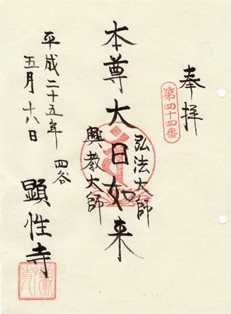 奉拝
第四十四番
本尊大日如来
弘法大師
興教大師
平成二十五年
五月十八日
四谷
顕性寺